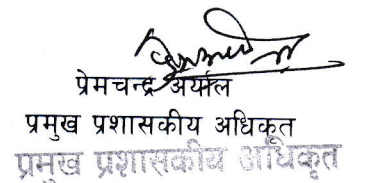 प्रेमचन्द्र अर्याल
प्रमुख प्रशासकीय अधिकृत
प्रमुख प्रशासकीय अधिकृत